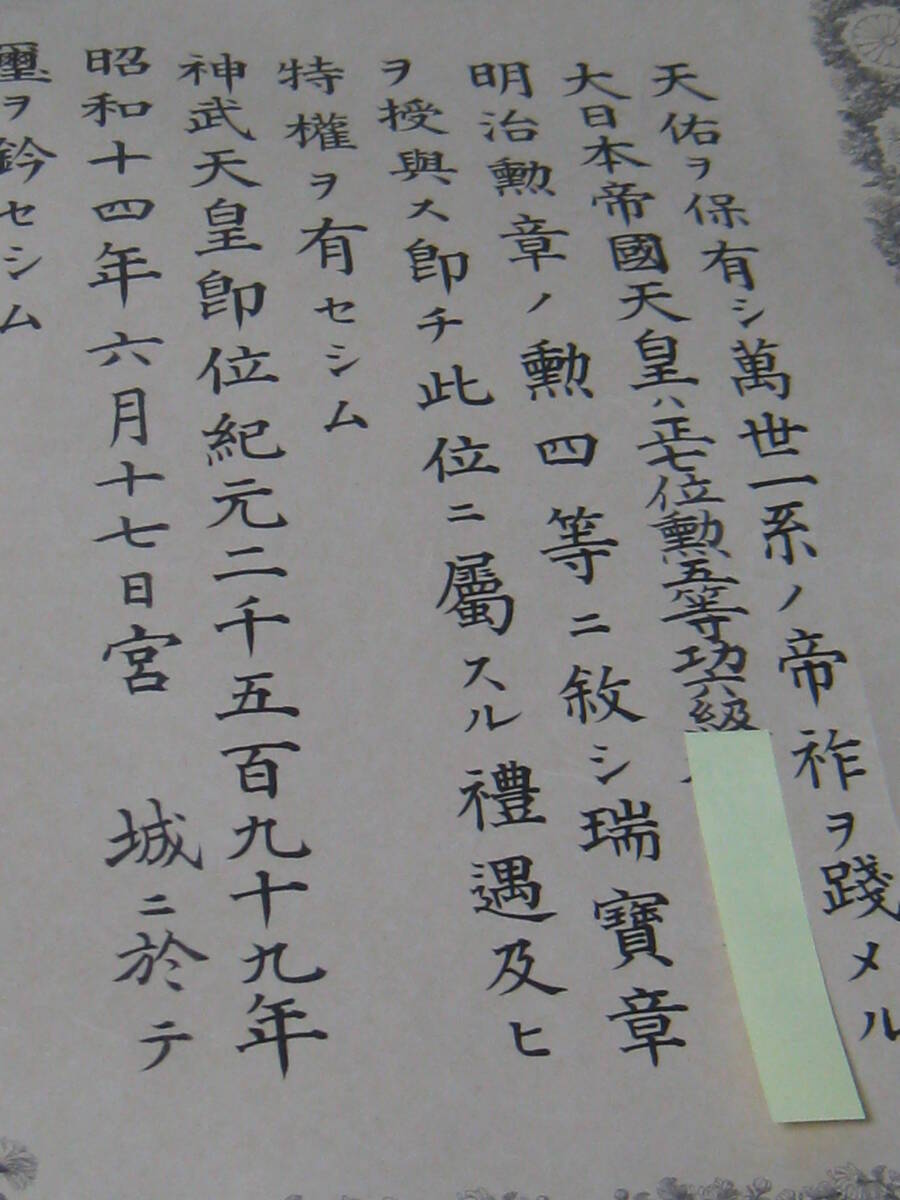 天佑ヲ保有シ萬世一系ノ帝祚ヲ踐メル
大日本帝國天皇ハ正七位勲五等功六級
明治勲章ノ勲四等ニ敘シ瑞寶章
ヲ授與ス即チ此位ニ屬スル禮遇及ヒ
特權ヲ有セシム
神武天皇即位紀元二千五百九十九年
昭和十四年六月十七日宮城ニ於テ
璽ヲ鈐セシム